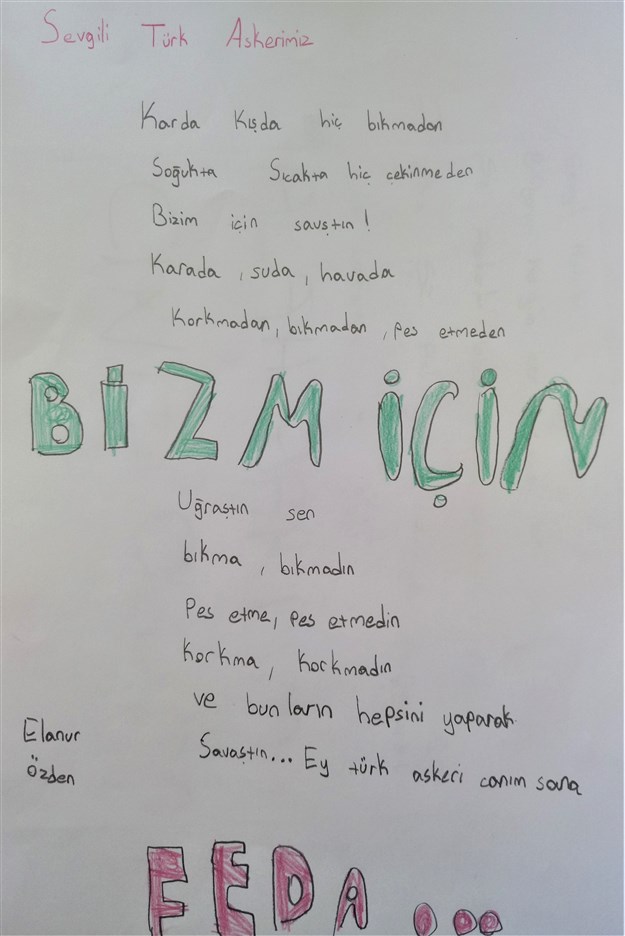 Sevgili Türk Askerimiz
Karda Kışda hiç bıkmadan
Soğukta Sıcakta hiç çekinmeden
Bizim için savştın!
Karada, suda, havada
Korkmadan, bıkmadan, pes etmeden
BİZM İÇİN
Uğraştın sen
bıkma, bıkmadın
Pes etme, pes etmedin
Korkma, Korkmadın
ve bunların hepsini yaparak
Savaştın... Ey türk askeri canım sana
Elanur
Özden
FEDA...